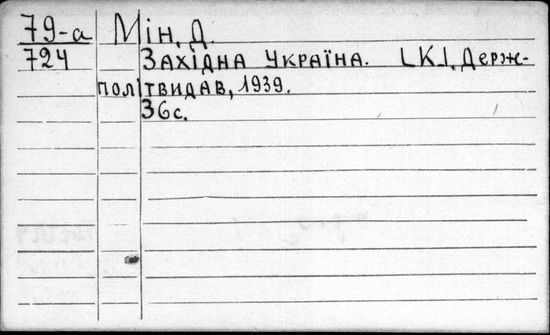 79-а Мін, Д.
724 Західна Україна. [К], Держ-
політвидав, 1939.
36с.